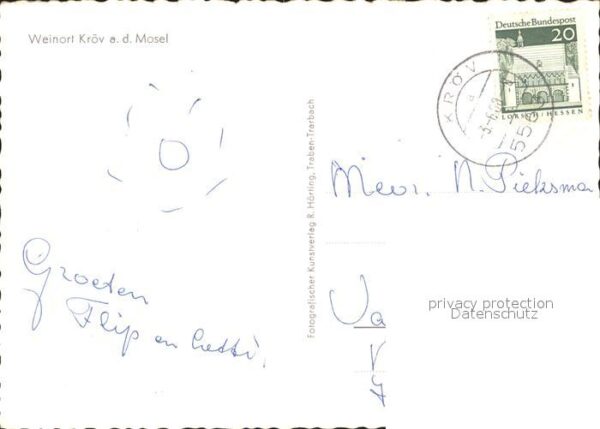 Weinort Kröv a. d. Mosel
Groeten
Flip en
Fotografischer Kunstverlag R. Hörning, Traben-Trarbach
Deutsche Bundespost
20
LORSCH/HESSEN
KRÖV
a
Mevr. N.
privacy protection
Datenschutz